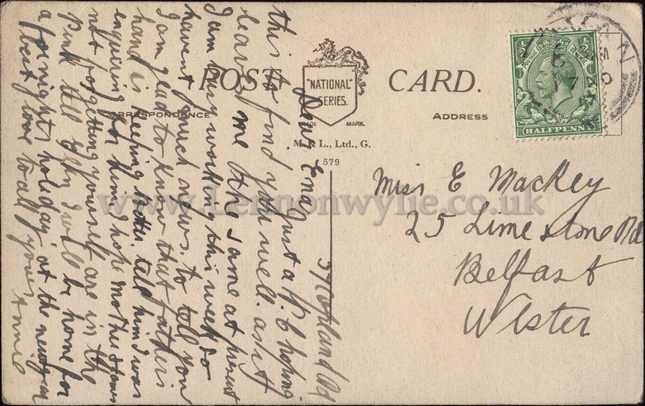 POST CARD.
"NATIONAL" SERIES.
TRADE MARK.
M. & L., Ltd., G.
579
CORRESPONDENCE
ADDRESS
HALFPENNY
Miss E Mackey
25 Limestone Rd
Belfast
Ulster
Dear Ena Just a P.C hoping
this to find you well. as it
leaves me the same at present
I am busy working this week so
havent much news to tell you
I am glad to know that fathers
hand is keeping better tell him I was
enquiring for him I hope mother & James
not forgetting yourself are in the
pink tell them I will be home for
a fortnight holiday at the new year
best love to all yours Annie
www.Lennonwylie.co.uk